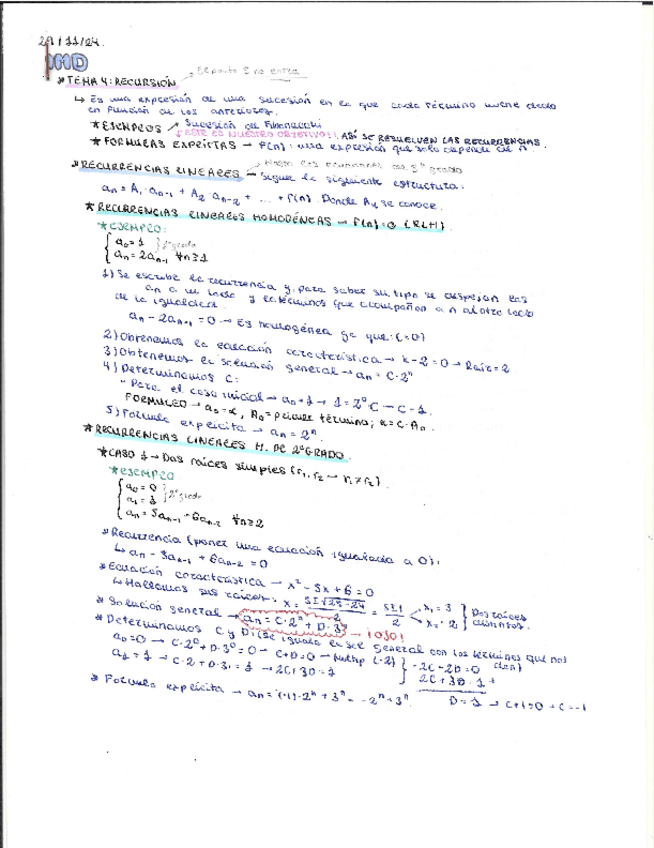 29/11/24.
IMD
* TEMA 4: RECURSIÓN → El punto 5 no entra
↳ Es una expresión de una sucesión en la que cada término viene dado
en función de los anteriores.
* EJEMPLOS → Sucesión de Fibonacci
ESTE ES NUESTRO OBJETIVO!! ASÍ SE RESUELVEN LAS RECURRENCIAS.
* FORMULAS EXPLÍCITAS → F(n): una expresión que solo depende de n
* RECURRENCIAS LINEALES → Hasta las ecuaciones de 3º grado
→ Sigue la siguiente estructura:
aₙ = A₁ · aₙ₋₁ + A₂ aₙ₋₂ + ... + f(n). Donde Aₖ se conoce.
* RECURRENCIAS LINEALES HOMOGÉNEAS → f(n)=0 (RLH)
* EJEMPLO:
a₀ = 1
aₙ = 2aₙ₋₁ ∀n≥1 } 1º grado
1) Se escribe la recurrencia y, para saber su tipo se despejan las
aₙ a un lado y los términos que acompañan a n al otro lado
de la igualdad.
aₙ - 2aₙ₋₁ = 0 → Es homogénea ya que:
2) Obtenemos la ecuación característica → x-2=0 → Raíz=2
3) Obtenemos la solución general → aₙ = C·2ⁿ
4) Determinamos C:
- Para el caso inicial → a₀=1 → 1=2⁰C → C=1.
FORMULEO → a₀=α, A₀=primer término; α=C·A₀.
5) Fórmula explícita → aₙ = 2ⁿ.
* RECURRENCIAS LINEALES H. DE 2º GRADO.
* CASO 1 → Dos raíces simples (r₁, r₂ → r₁≠r₂).
* EJEMPLO
a₀ = 0
a₁ = 1 } 2º grado
aₙ = 5aₙ₋₁ - 6aₙ₋₂ ∀n≥2
* Recurrencia (poner una ecuación igualada a 0):
↳ aₙ - 5aₙ₋₁ + 6aₙ₋₂ = 0
* Ecuación característica → x² - 5x + 6 = 0
↳ Hallamos sus raíces: x = 5±√25-24 / 2 = 5±1 / 2 < x₁=3 x₂=2 } Dos raíces distintas.
* Solución general → aₙ = C·2ⁿ + D·3ⁿ → ¡OJO!
* Determinamos C y D: (se iguala la sol general con los términos que nos den)
a₀=0 → C·2⁰ + D·3⁰ = 0 → C+D=0 → Multip (·2) } -2C-2D=0
a₁=1 → C·2 + D·3 = 1 → 2C+3D=1 } 2C+3D=1 +
D=1 → C+1=0 → C=-1
* Fórmula explícita → aₙ = (-1)·2ⁿ + 3ⁿ = -2ⁿ + 3ⁿ